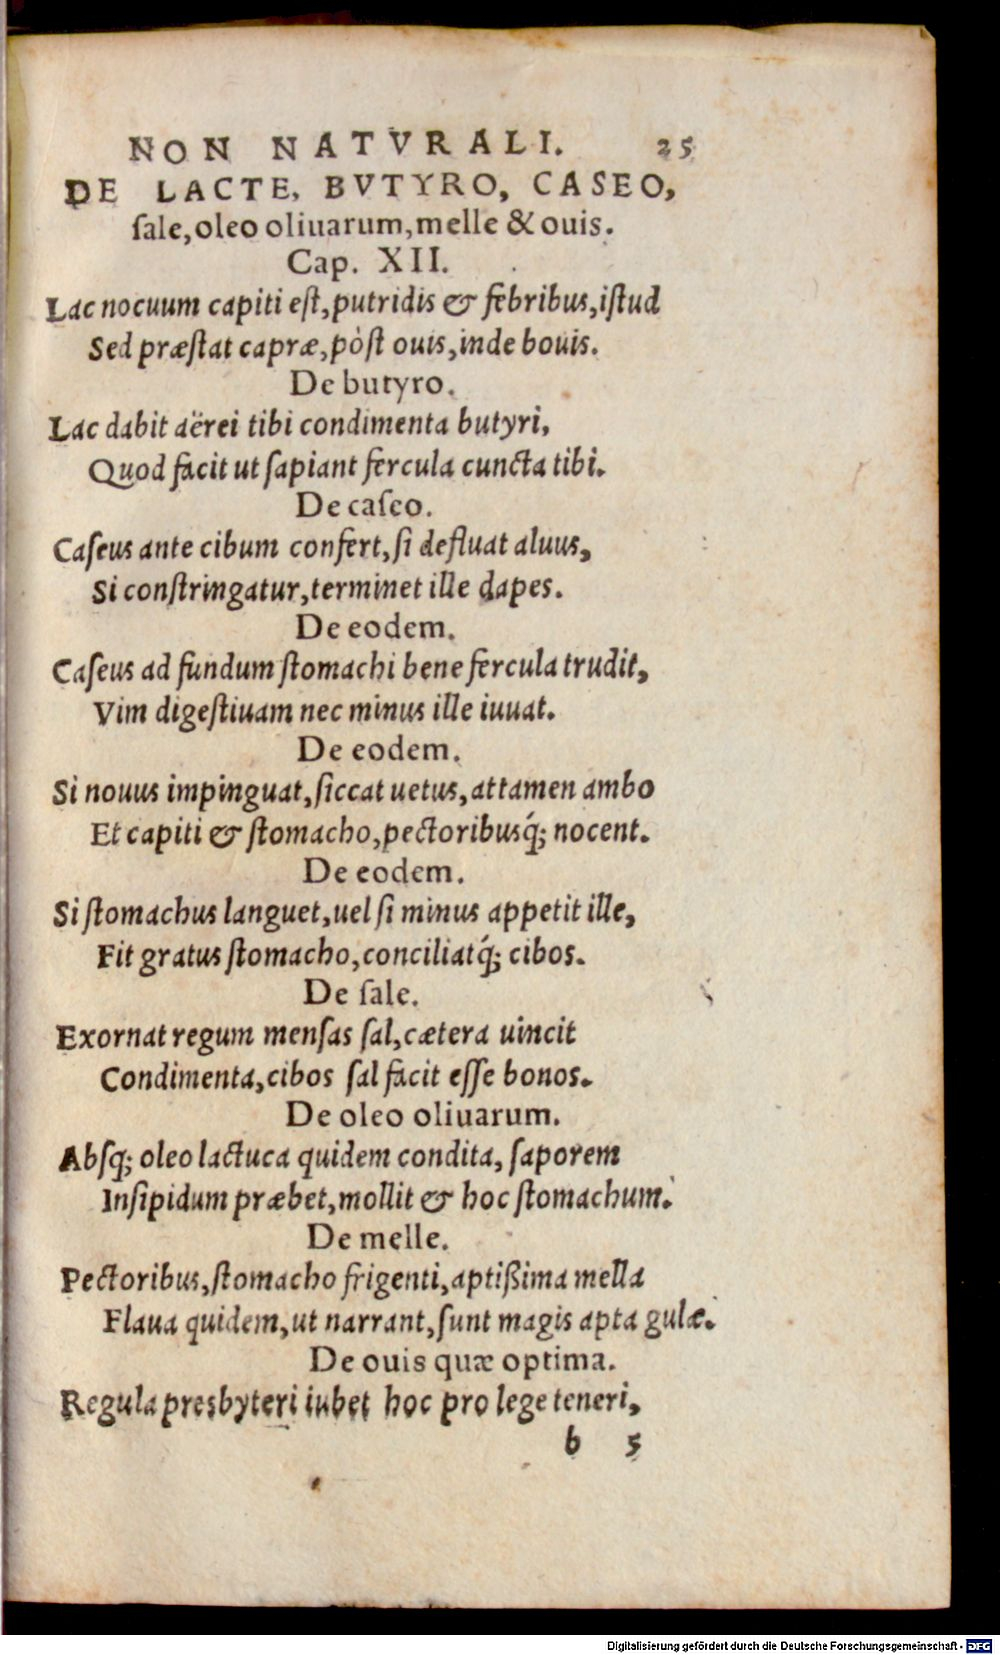 NON NATVRALI. 25
DE LACTE, BVTYRO, CASEO,
ſale, oleo oliuarum, melle & ouis.
Cap. XII.
Lac nocuum capiti eſt, putridis & febribus, iſtud
Sed præſtat capræ, pòſt ouis, inde bouis.
De butyro.
Lac dabit aërei tibi condimenta butyri,
Quod facit ut ſapiant fercula cuncta tibi.
De caſeo.
Caſeus ante cibum confert, ſi defluat aluus,
Si conſtringatur, terminet ille dapes.
De eodem.
Caſeus ad fundum ſtomachi bene fercula trudit,
Vim digeſtiuam nec minus ille iuuat.
De eodem.
Si nouus impinguat, ſiccat uetus, attamen ambo
Et capiti & ſtomacho, pectoribusq́; nocent.
De eodem.
Si ſtomachus languet, uel ſi minus appetit ille,
Fit gratus ſtomacho, conciliatq́; cibos.
De ſale.
Exornat regum menſas ſal, cætera uincit
Condimenta, cibos ſal facit eſſe bonos.
De oleo oliuarum.
Abſq; oleo lactuca quidem condita, ſaporem
Inſipidum præbet, mollit & hoc ſtomachum.
De melle.
Pectoribus, ſtomacho frigenti, aptißima mella
Flaua quidem, ut narrant, ſunt magis apta gulæ.
De ouis quæ optima.
Regula presbyteri iubet hoc pro lege teneri,
b 5
Digitalisierung gefördert durch die Deutsche Forschungsgemeinschaft - DFG